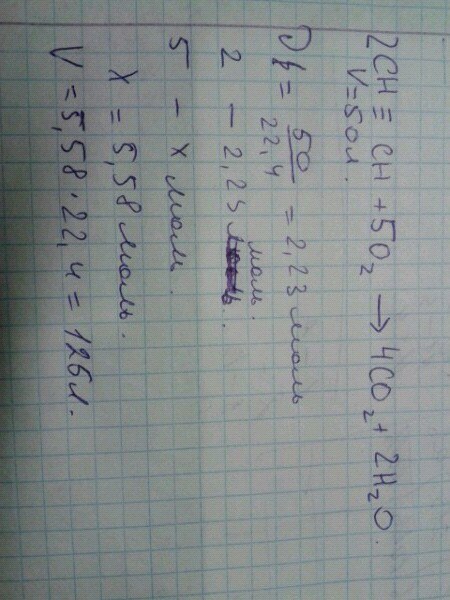 2CH ≡ CH + 5O₂ → 4CO₂ + 2H₂O.
V = 50л.
∂b = 50/22,4 = 2,23 моль
2 — 2,23 моль.
5 — x моль.
x = 5,58 моль.
V = 5,58 · 22,4 = 125л.